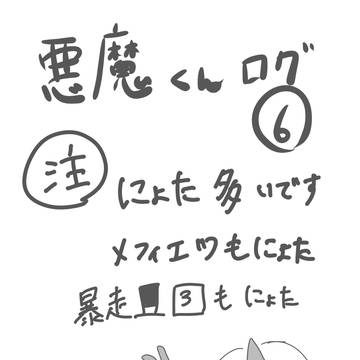 悪魔くんログ
⑥
㊟にょた多いです
メフィエツもにょた
暴走皿3もにょた